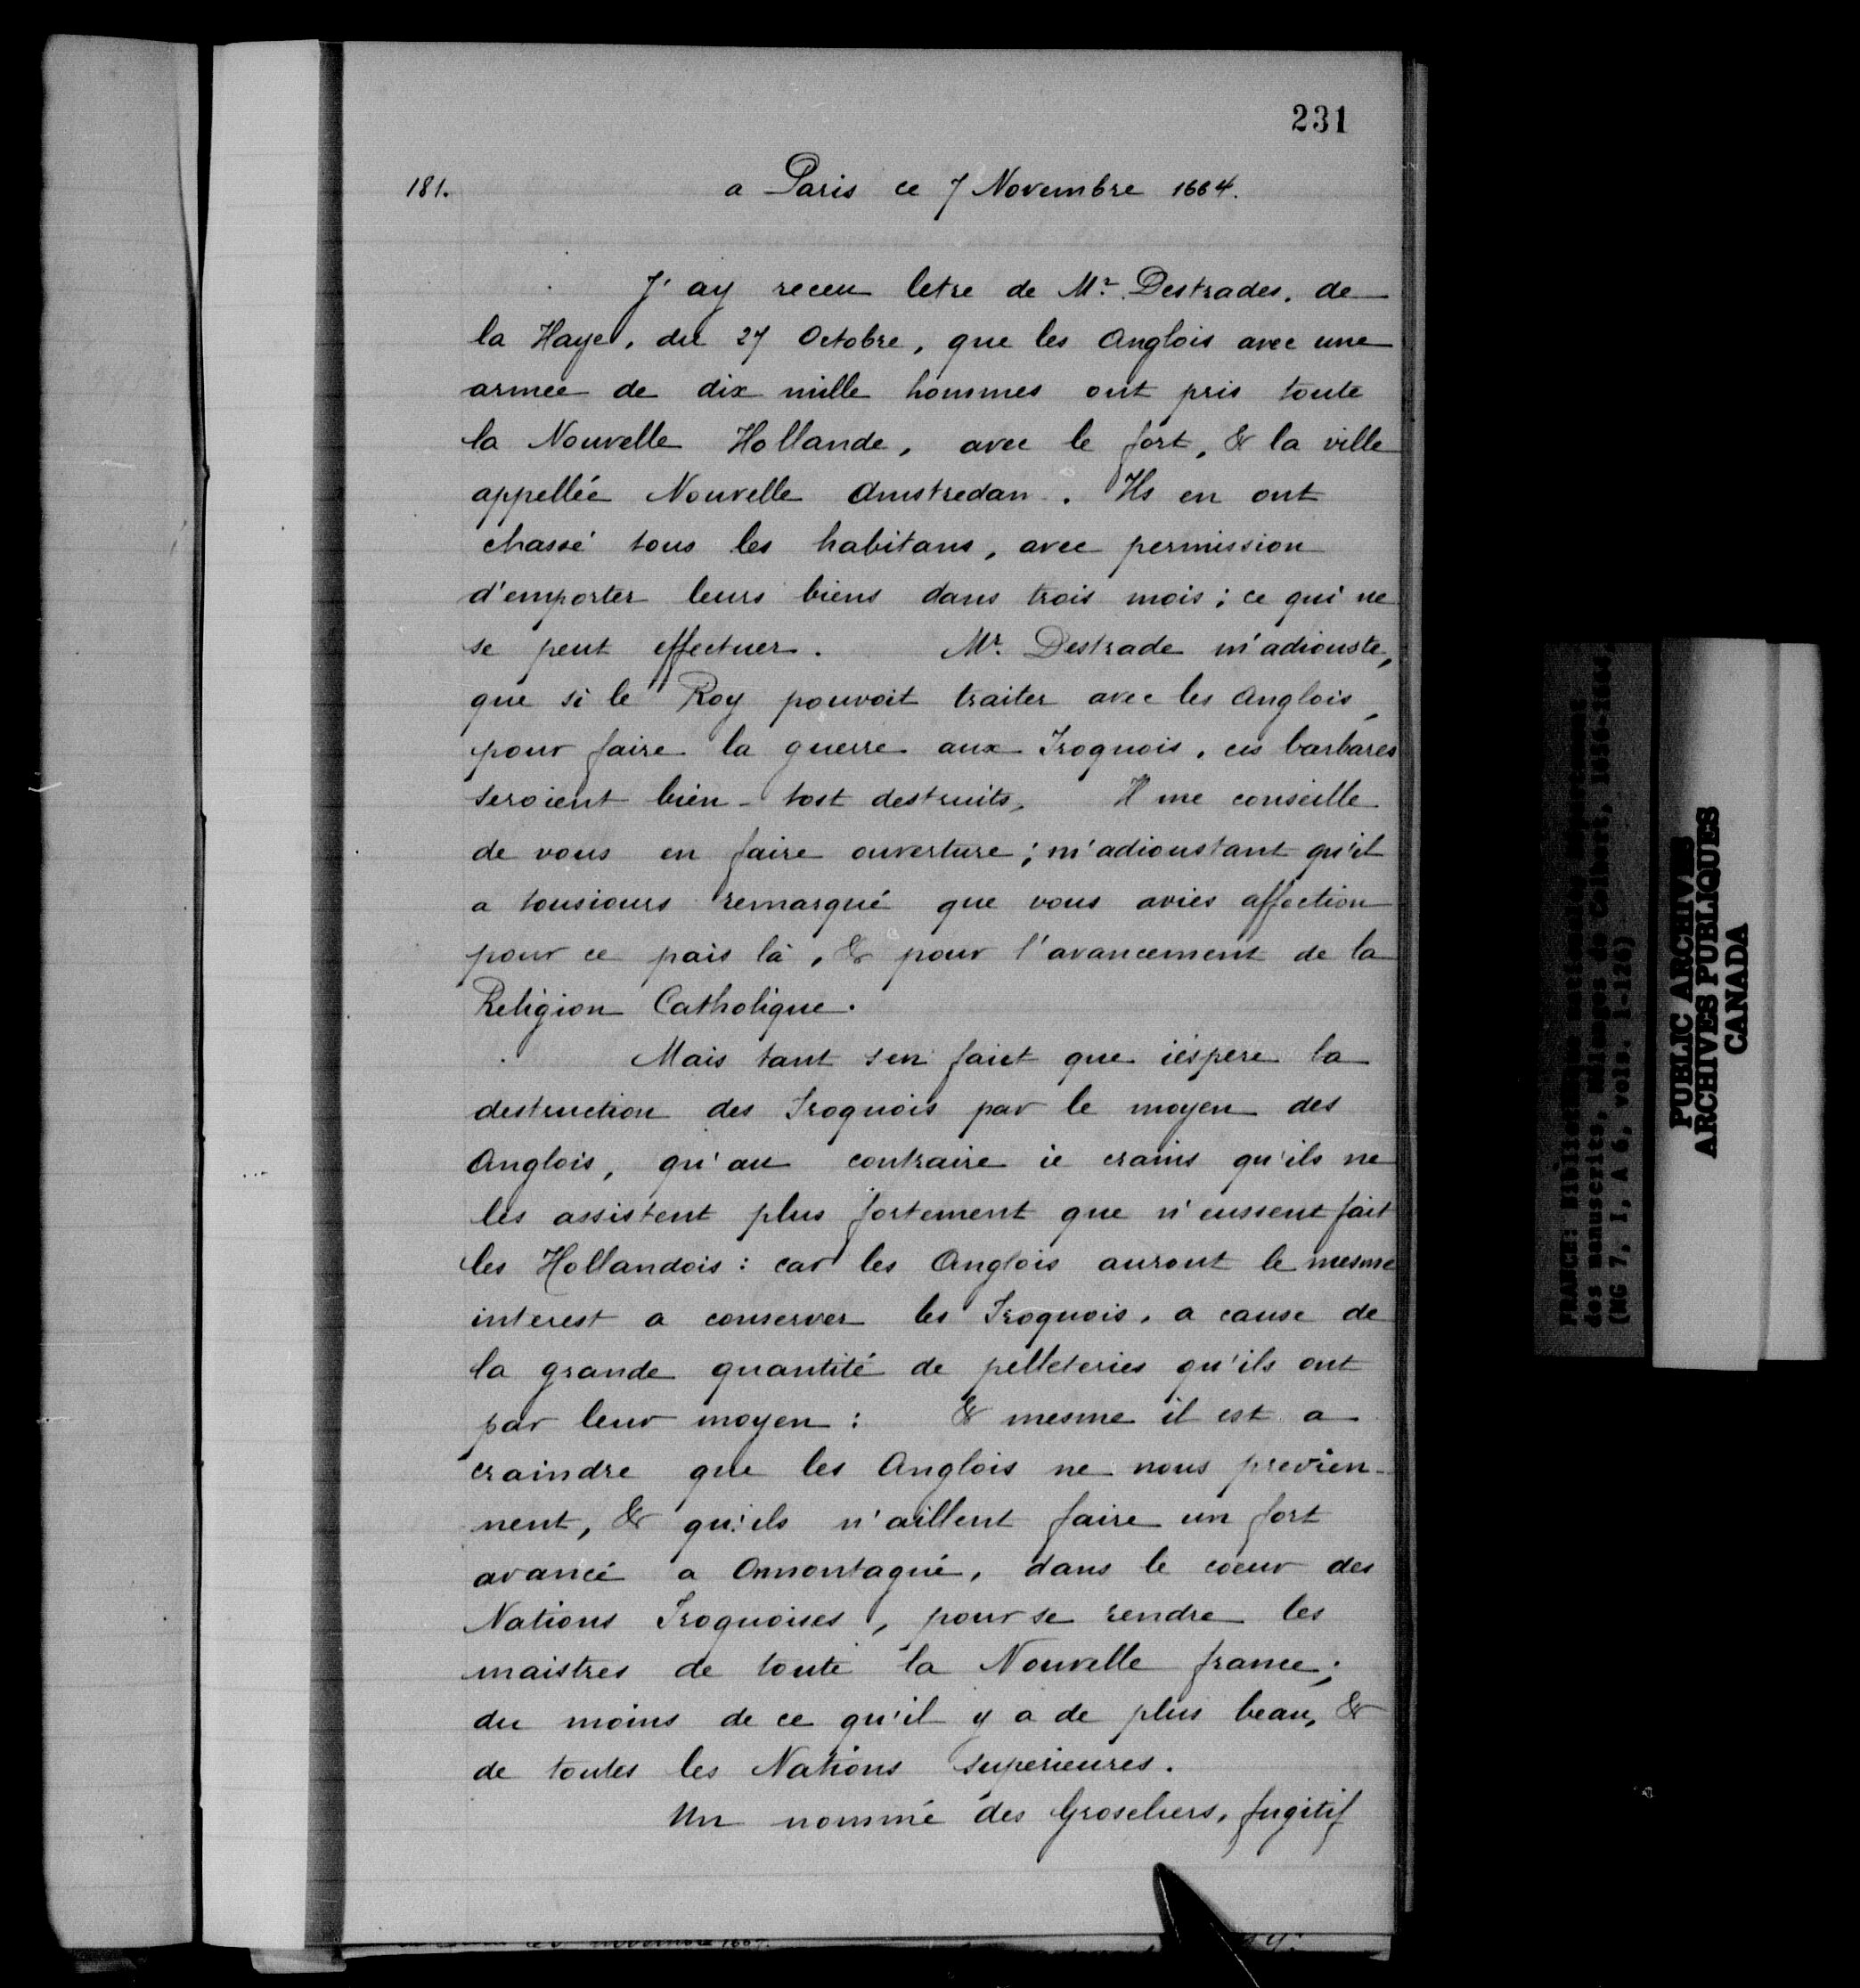 231
181. a Paris ce 7 Novembre 1664.
J'ay receu letre de Mr. Destrades, de
la Haye, du 27 Octobre, que les Anglois avec une
armee de dix mille hommes ont pris toute
la Nouvelle Hollande, avec le fort, & la ville
appellée Nouvelle Amstredan. Ils en ont
chassé tous les habitans, avec permission
d'emporter leurs biens dans trois mois; ce qui ne
se peut effectuer. Mr. Destrade m'adiouste,
que si le Roy pouvoit traiter avec les Anglois,
pour faire la guerre aux Iroquois, ces barbares
seroient bien-tost destruits, Il me conseille
de vous en faire ouverture; m'adioustant qu'il
a tousiours remarqué que vous aviés affection
pour ce païs là, & pour l'avancement de la
Religion Catholique.
Mais tant s'en faut que i'espere la
destruction des Iroquois par le moyen des
Anglois, qu'au contraire ie crains qu'ils ne
les assistent plus fortement que n'eussent fait
les Hollandois: car les Anglois auront le mesme
interest a conserver les Iroquois, a cause de
la grande quantité de pelleteries qu'ils ont
par leur moyen: & mesme il est a
craindre que les Anglois ne nous previen-
nent, & qu'ils n'aillent faire un fort
avancé a Onnontagué, dans le coeur des
Nations Iroquoises, pour se rendre les
maistres de toute la Nouvelle france;
du moins de ce qu'il y a de plus beau, &
de toutes les Nations superieures.
Un nommé des Groseliers, fugitif
des manuscrits, Mélanges de Colbert,
(MG 7, I, A 6, vols. 1-126)
PUBLIC ARCHIVES
ARCHIVES PUBLIQUES
CANADA